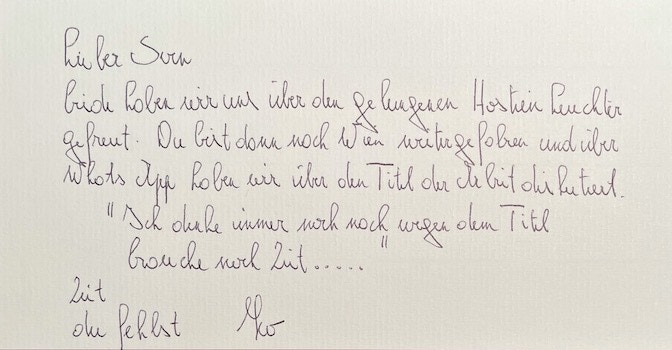 Lieber Sven
beide haben wir uns über den gelungenen Hostien Leuchter
gefreut. Du bist dann nach Wien weitergefahren und über
Whats App haben wir über den Titel der Arbeit diskutiert.
"Ich denke immer noch nach wegen dem Titel
brauche noch Zeit....."
Zeit
du fehlst